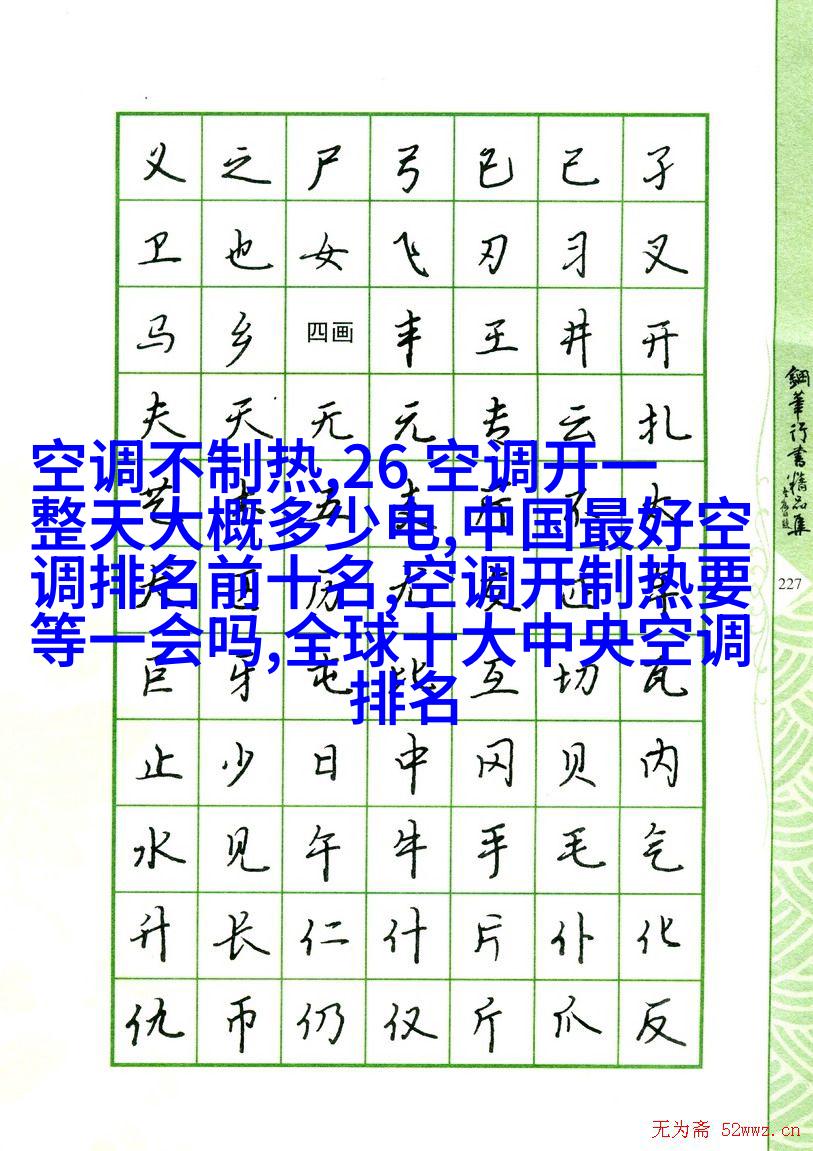 义 之 尸 弓 已 己 子
卫 也 女 飞 刃 习 叉
马 乡 四画 丰 王 井 开
夫 天 无 元 专 云 扎
空调不制热,26 空调开一
整天大概多少电,中国最好空
调排名前十名,空调开制热要
等一会吗,全球十大中央空调
排名
巨 牙 屯 比 互 切 瓦
止 少 日 中 冈 贝 内
水 见 午 牛 手 毛 气
升 长 仁 什 片 仆 化
仇 币 仍 仅 斤 爪 反
钢笔行书精品集
227
无为斋 52wwz.cn